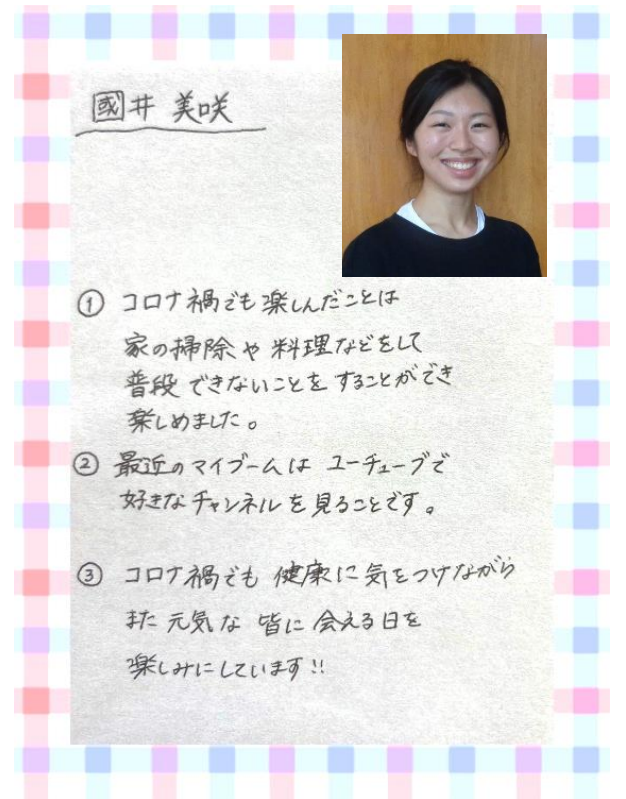 國井 美咲
① コロナ禍でも楽しんだことは
家の掃除や料理などをして
普段できないことをすることができ
楽しめました。
② 最近のマイブームはユーチューブで
好きなチャンネルを見ることです。
③ コロナ禍でも健康に気をつけながら
また元気な皆に会える日を
楽しみにしています!!